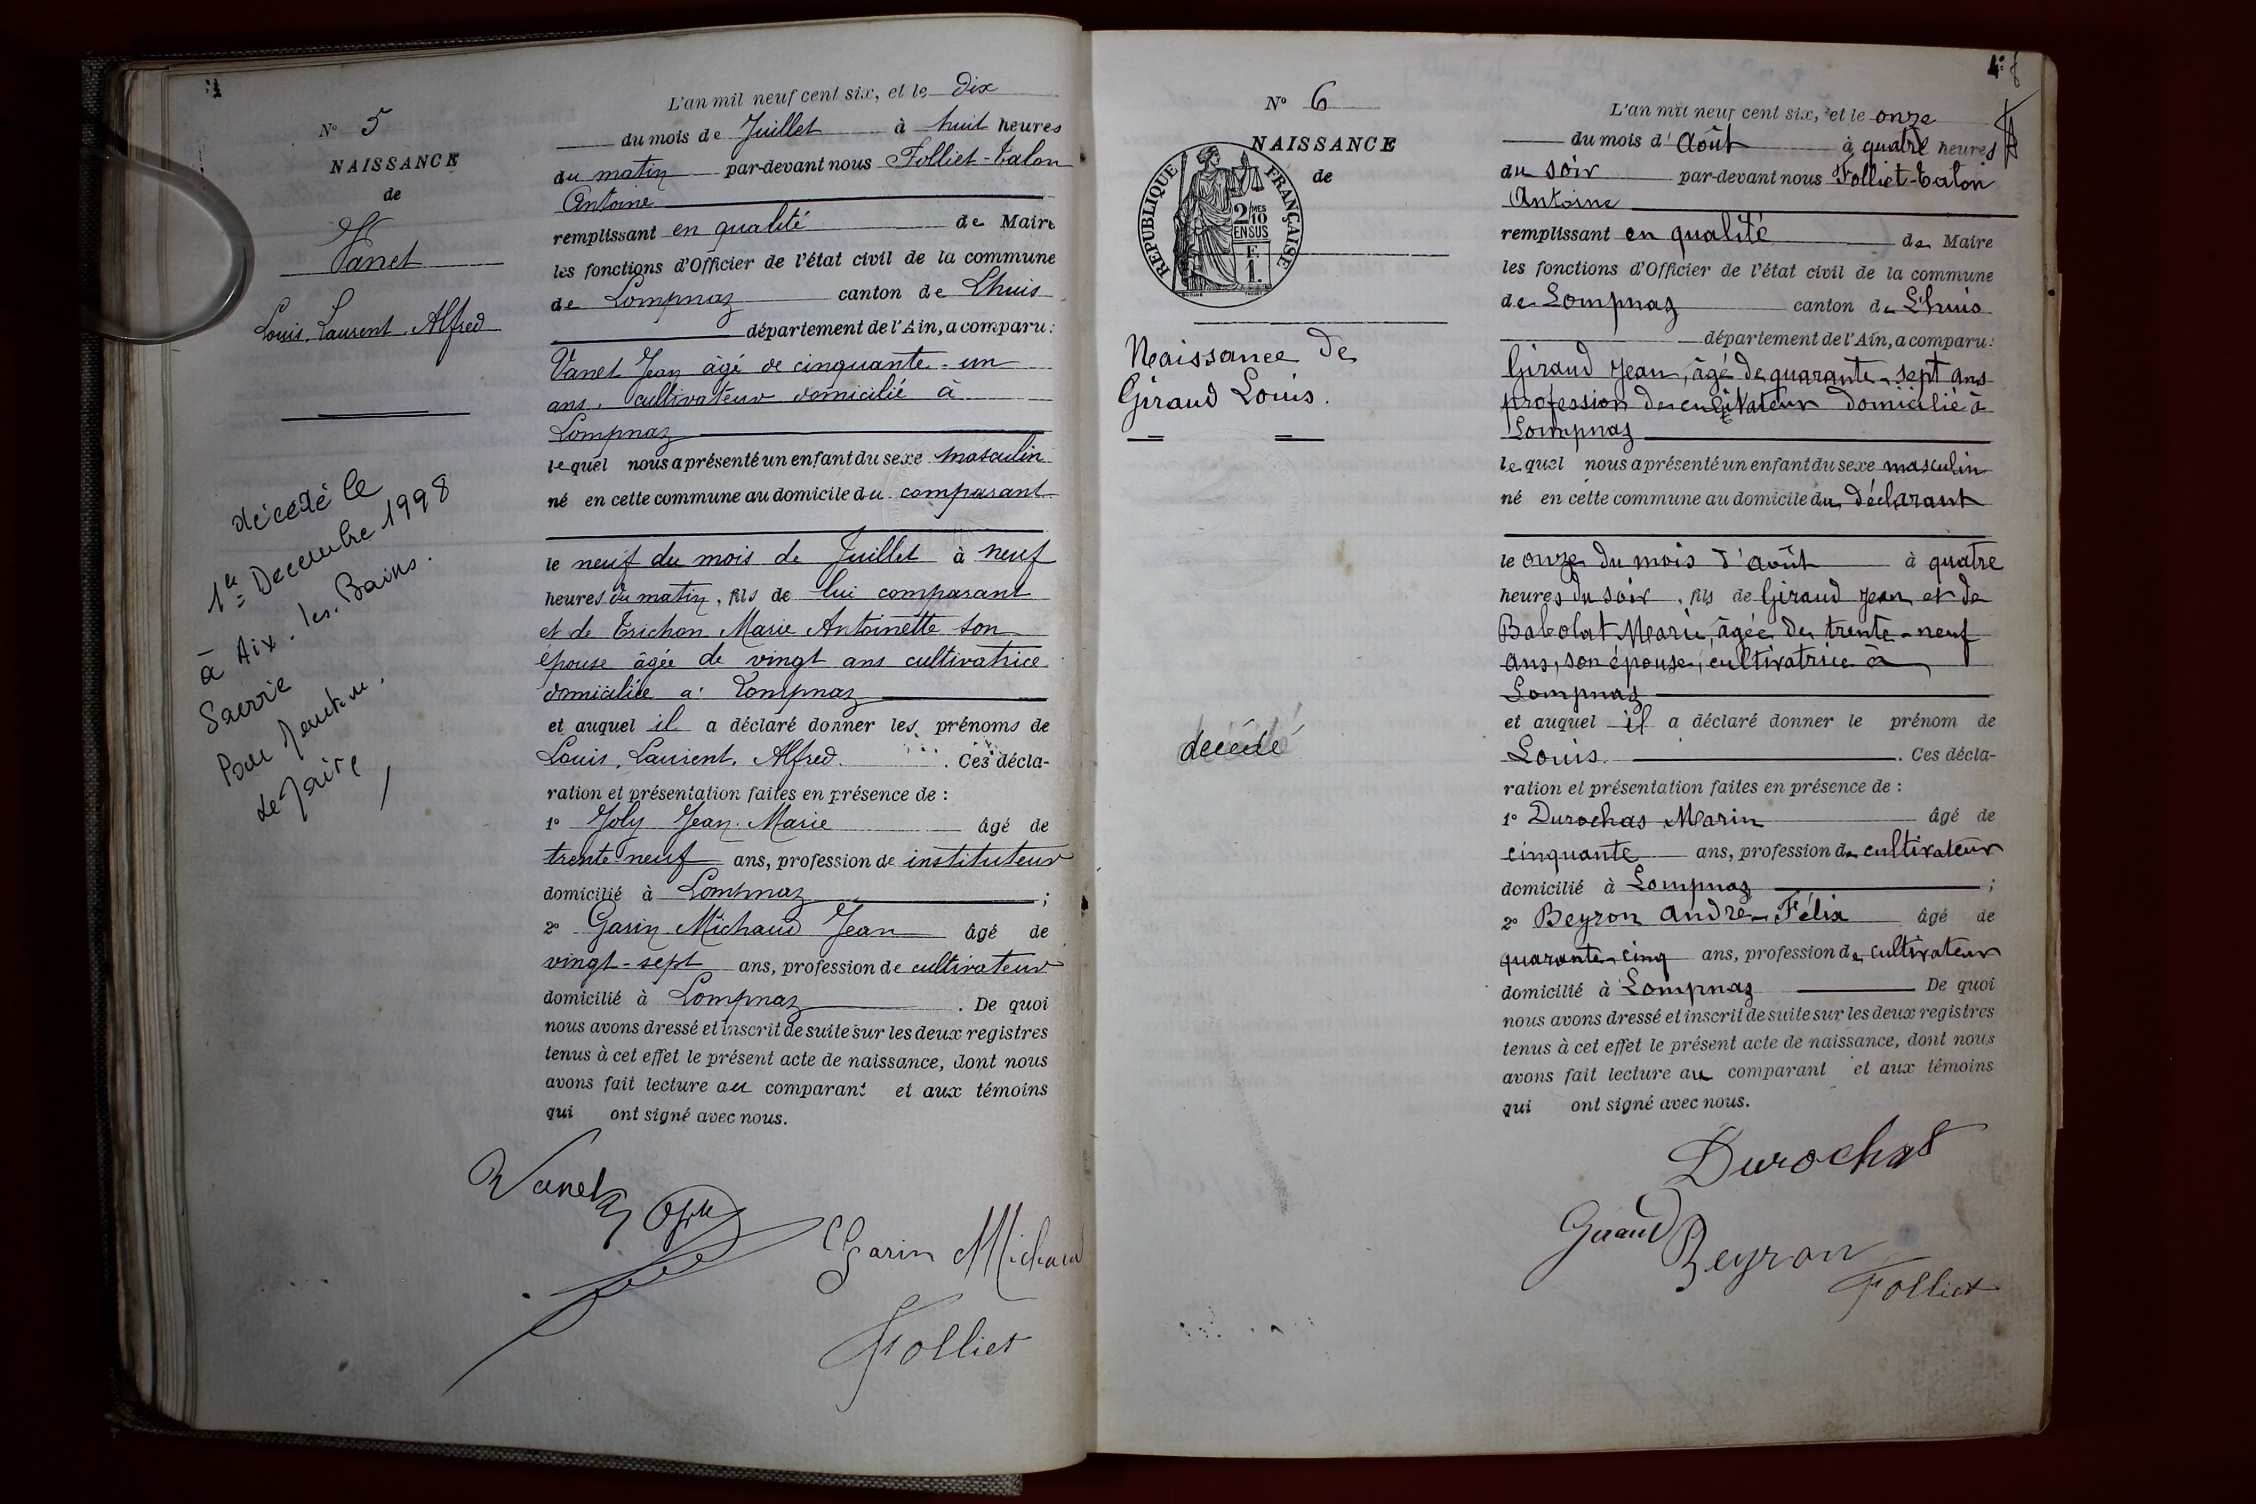 N° 5
NAISSANCE
de
Vanet
Louis, Laurent, Alfred
décédé le
1er Decembre 1998
à Aix. les. Bains.
Savoie
Pour mention.
Le Maire
L'an mil neuf cent six, et le dix
du mois de Juillet à huit heures
du matin par-devant nous Folliet-Talon
Antoine
remplissant en qualité de Maire
les fonctions d'Officier de l'état civil de la commune
de Lompnaz canton de Lhuis
département de l'Ain, a comparu:
Vanet Jean âgé de cinquante-un
ans, cultivateur domicilié à
Lompnaz
lequel nous a présenté un enfant du sexe masculin
né en cette commune au domicile du comparant
le neuf du mois de Juillet à neuf
heures du matin, fils de lui comparant
et de Trichon Marie Antoinette son
épouse âgée de vingt ans cultivatrice
domiciliée à Lompnaz
et auquel il a déclaré donner les prénoms de
Louis, Laurent, Alfred. Ces décla-
ration et présentation faites en présence de :
1° Joly Jean-Marie âgé de
trente-neuf ans, profession de instituteur
domicilié à Lompnaz ;
2° Garin Michaud Jean âgé de
vingt-sept ans, profession de cultivateur
domicilié à Lompnaz. De quoi
nous avons dressé et inscrit de suite sur les deux registres
tenus à cet effet le présent acte de naissance, dont nous
avons fait lecture au comparant et aux témoins
qui ont signé avec nous.
Vanet
Joly
Garin Michaud
Folliet
N° 6
NAISSANCE
de
REPUBLIQUE FRANÇAISE
2/MES 10
EN SUS
F.
1.
Naissance de
Giraud Louis.
décédé
L'an mil neuf cent six, et le onze
du mois d'Août à quatre heures
du soir par-devant nous Folliet-Talon
Antoine
remplissant en qualité de Maire
les fonctions d'Officier de l'état civil de la commune
de Lompnaz canton de Lhuis
département de l'Ain, a comparu:
Giraud Jean, âgé de quarante-sept ans
profession de cultivateur domicilié à
Lompnaz
lequel nous a présenté un enfant du sexe masculin
né en cette commune au domicile du déclarant
le onze du mois d'août à quatre
heures du soir, fils de Giraud Jean et de
Babolat Marie, âgée de trente-neuf
ans, son épouse, cultivatrice à
Lompnaz
et auquel il a déclaré donner le prénom de
Louis. Ces décla-
ration et présentation faites en présence de :
1° Durochas Marin âgé de
cinquante ans, profession de cultivateur
domicilié à Lompnaz ;
2° Beyron André-Félix âgé de
quarante-cinq ans, profession de cultivateur
domicilié à Lompnaz De quoi
nous avons dressé et inscrit de suite sur les deux registres
tenus à cet effet le présent acte de naissance, dont nous
avons fait lecture au comparant et aux témoins
qui ont signé avec nous.
Durochas
Giraud
Beyron
Folliet